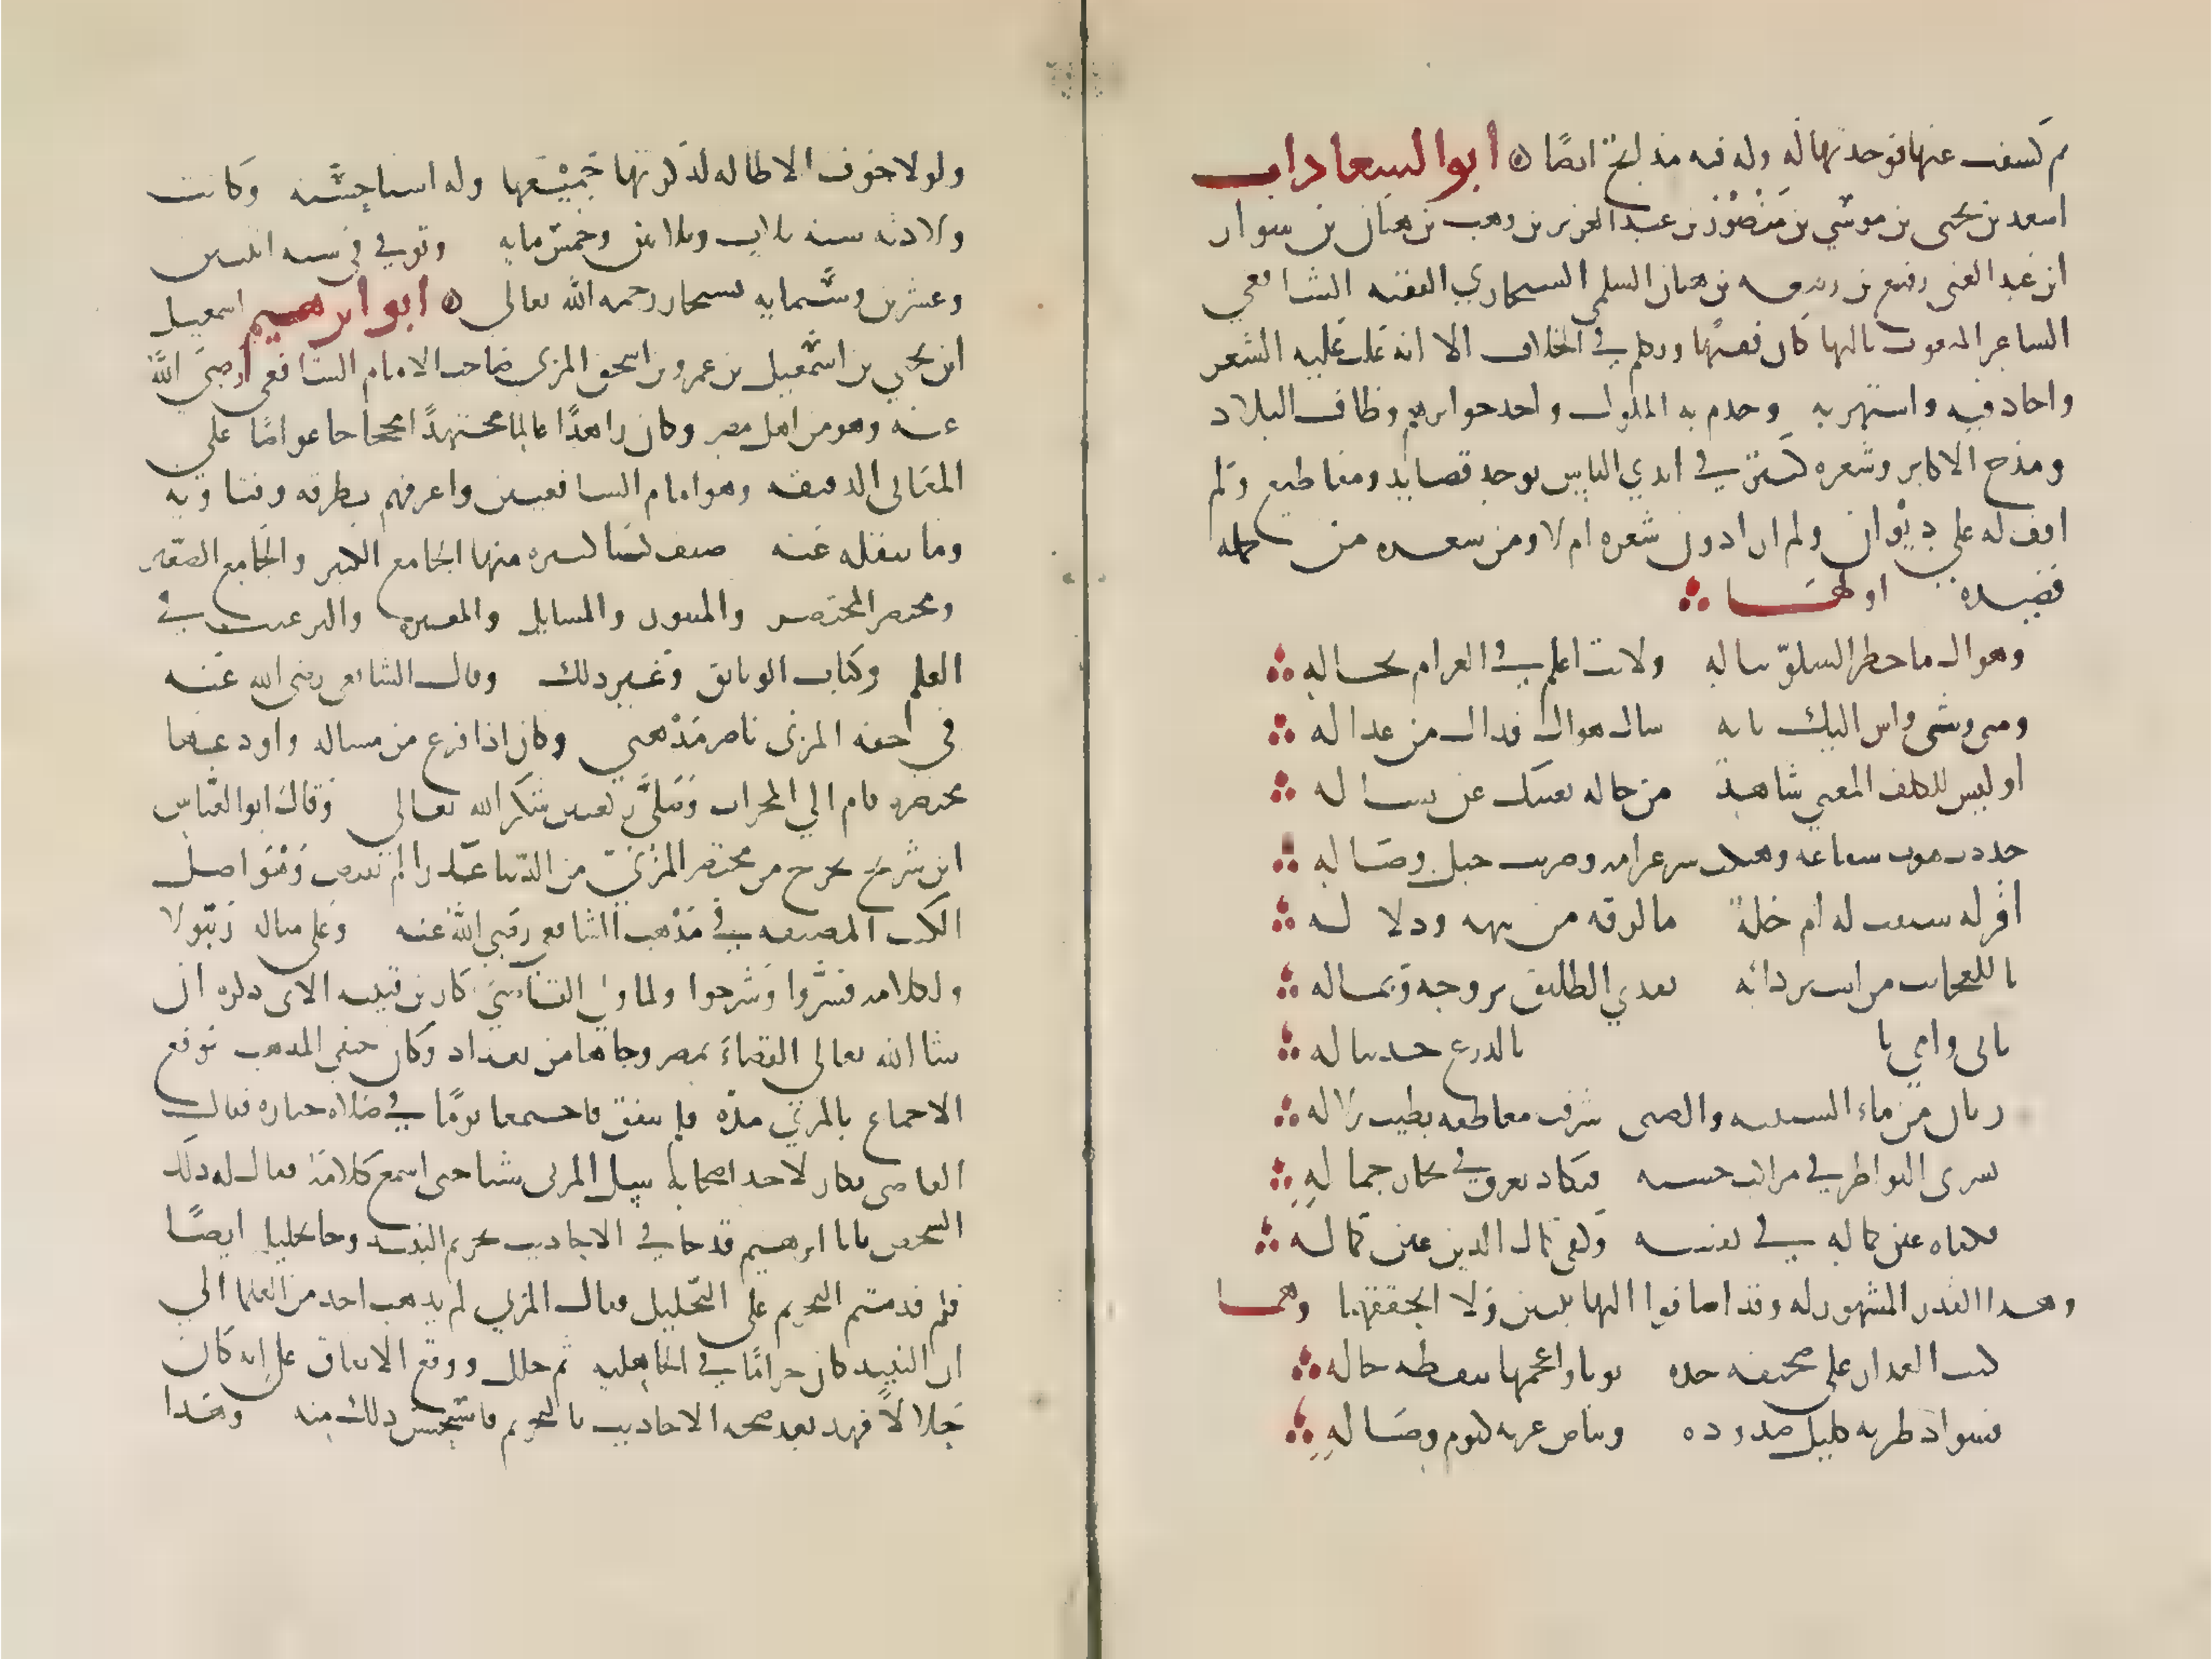 ثم كشفت عنها فوجدتها له وله فيه مدايح ايضًا ۞ ابو السعادات
اسعد بن يحيى بن موسى بن منصور بن عبد العزيز بن وهب بن هبان بن سوار
ابن عبد الله بن رفيع بن ربيعه بن هبان السلمي السنجاري الفقيه الشافعي
الشاعر المنعوت بالبها كان فقيهًا وتكلم في الخلاف الا انه غلب عليه الشعر
واجاد فيه واشتهر به وخدم به الملوك واخذ جوايزهم وطاف البلاد
ومدح الاكابر وشعره كثير في ايدي الناس يوجد قصايد ومقاطيع ولم
اقف له على ديوان ولم ادر ادون شعره ام لا ومن شعره من جمله
قصيده اولها
وهواك ما خطر السلو بباله ولانت اعلم في الغرام بحاله
ومتى وشى واش اليك بانه سال هواك فذاك من عذاله
او ليس للكلف المعنى شاهد من حاله يغنيك عن تساله
جددت ثوب سقامه وهتكت ستر غرامه وصرمت حبل وصاله
افزله سبقت له ام خلة مالوفه من تيهه ودلاله
يا للعجايب من اسير دابه يفدي الطليق بروحه وبماله
بابي وامي نابل بلحاظه
ريان من ماء الشبيبه والصبى شرقت معاطفه بطيب زلاله
تسري النواظر في مراكب حسنه فتكاد تغرق في بحار جماله
فكفاه عين كماله في نفسه وكفى كمال الدين عين كماله
وهذا القدر المشهور له وقد اضافوا اليها بيتين ولا اتحققهما وهما
كتب العذار على صحيفه خده نونا واعجمها بنقطه خاله
فسواد طرته كليل صدوده وبياض غرته كيوم وصاله
ولولا خوف الاطاله لذكرتها جميعها وله اشيا حسنه وكانت
ولادته سنه ثلاث وثلاثين وخمس مايه وتوفي في سنه اثنتين
وعشرين وستمايه بسنجار رحمه الله تعالى ۞ ابو ابرهيم اسمعيل
ابن يحيى بن اسمعيل بن عمرو بن اسحق المزني صاحب الامام الشافعي رضي الله
عنه وهو من اهل مصر وكان زاهدًا عالمًا مجتهدًا محجاجا غواصًا على
المعاني الدقيقه وهو امام الشافعيين واعرفهم بطرقه وفتاويه
وما ينقله عنه صنف كتبا كثيره منها الجامع الكبير والجامع الصغير
ومختصر المختصر والمنثور والمسايل والمعتبره والترغيب في
العلم وكتاب الوثايق وغير ذلك وقال الشافعي رضي الله عنه
في حقه المزني ناصر مذهبي وكان اذا فرغ من مساله واودعها
مختصره قام الي المحراب وصلى ركعتين شكرا لله تعالى وقال ابو العباس
ابن شريح يخرج من مختصر المزني من الدنيا عذرا لم تفتض وهو اصل
الكتب المصنفه في مذهب الشافعي رضي الله عنه وعلى مثاله رتبوا
ولكلامه فسروا وشرحوا ولما ولي القاضي بكار بن قتيبه الاتي ذكره ان
شا الله تعالى القضاء بمصر وجاها من بغداد وكان حنفي المذهب توقع
الاجتماع بالمزني مده فلم يتفق فاجتمعا يومًا في صلاه جنازه فقال
القاضي بكار لاحد اصحابه سل المزني شيا حتى اسمع كلامه فقال له ذلك
الشخص يا با ابرهيم قد جا في الاحاديث تحريم النبيذ وجا تحليله ايضًا
فلم قدمتم التحريم على التحليل فقال المزني لم يذهب احد من العلما الي
ان النبيذ كان حرامًا في الجاهليه ثم حلل ووقع الاتفاق على انه كان
حلالًا فهذا يعضد صحه الاحاديث بالتحريم فاستحسن ذلك منه وهذا